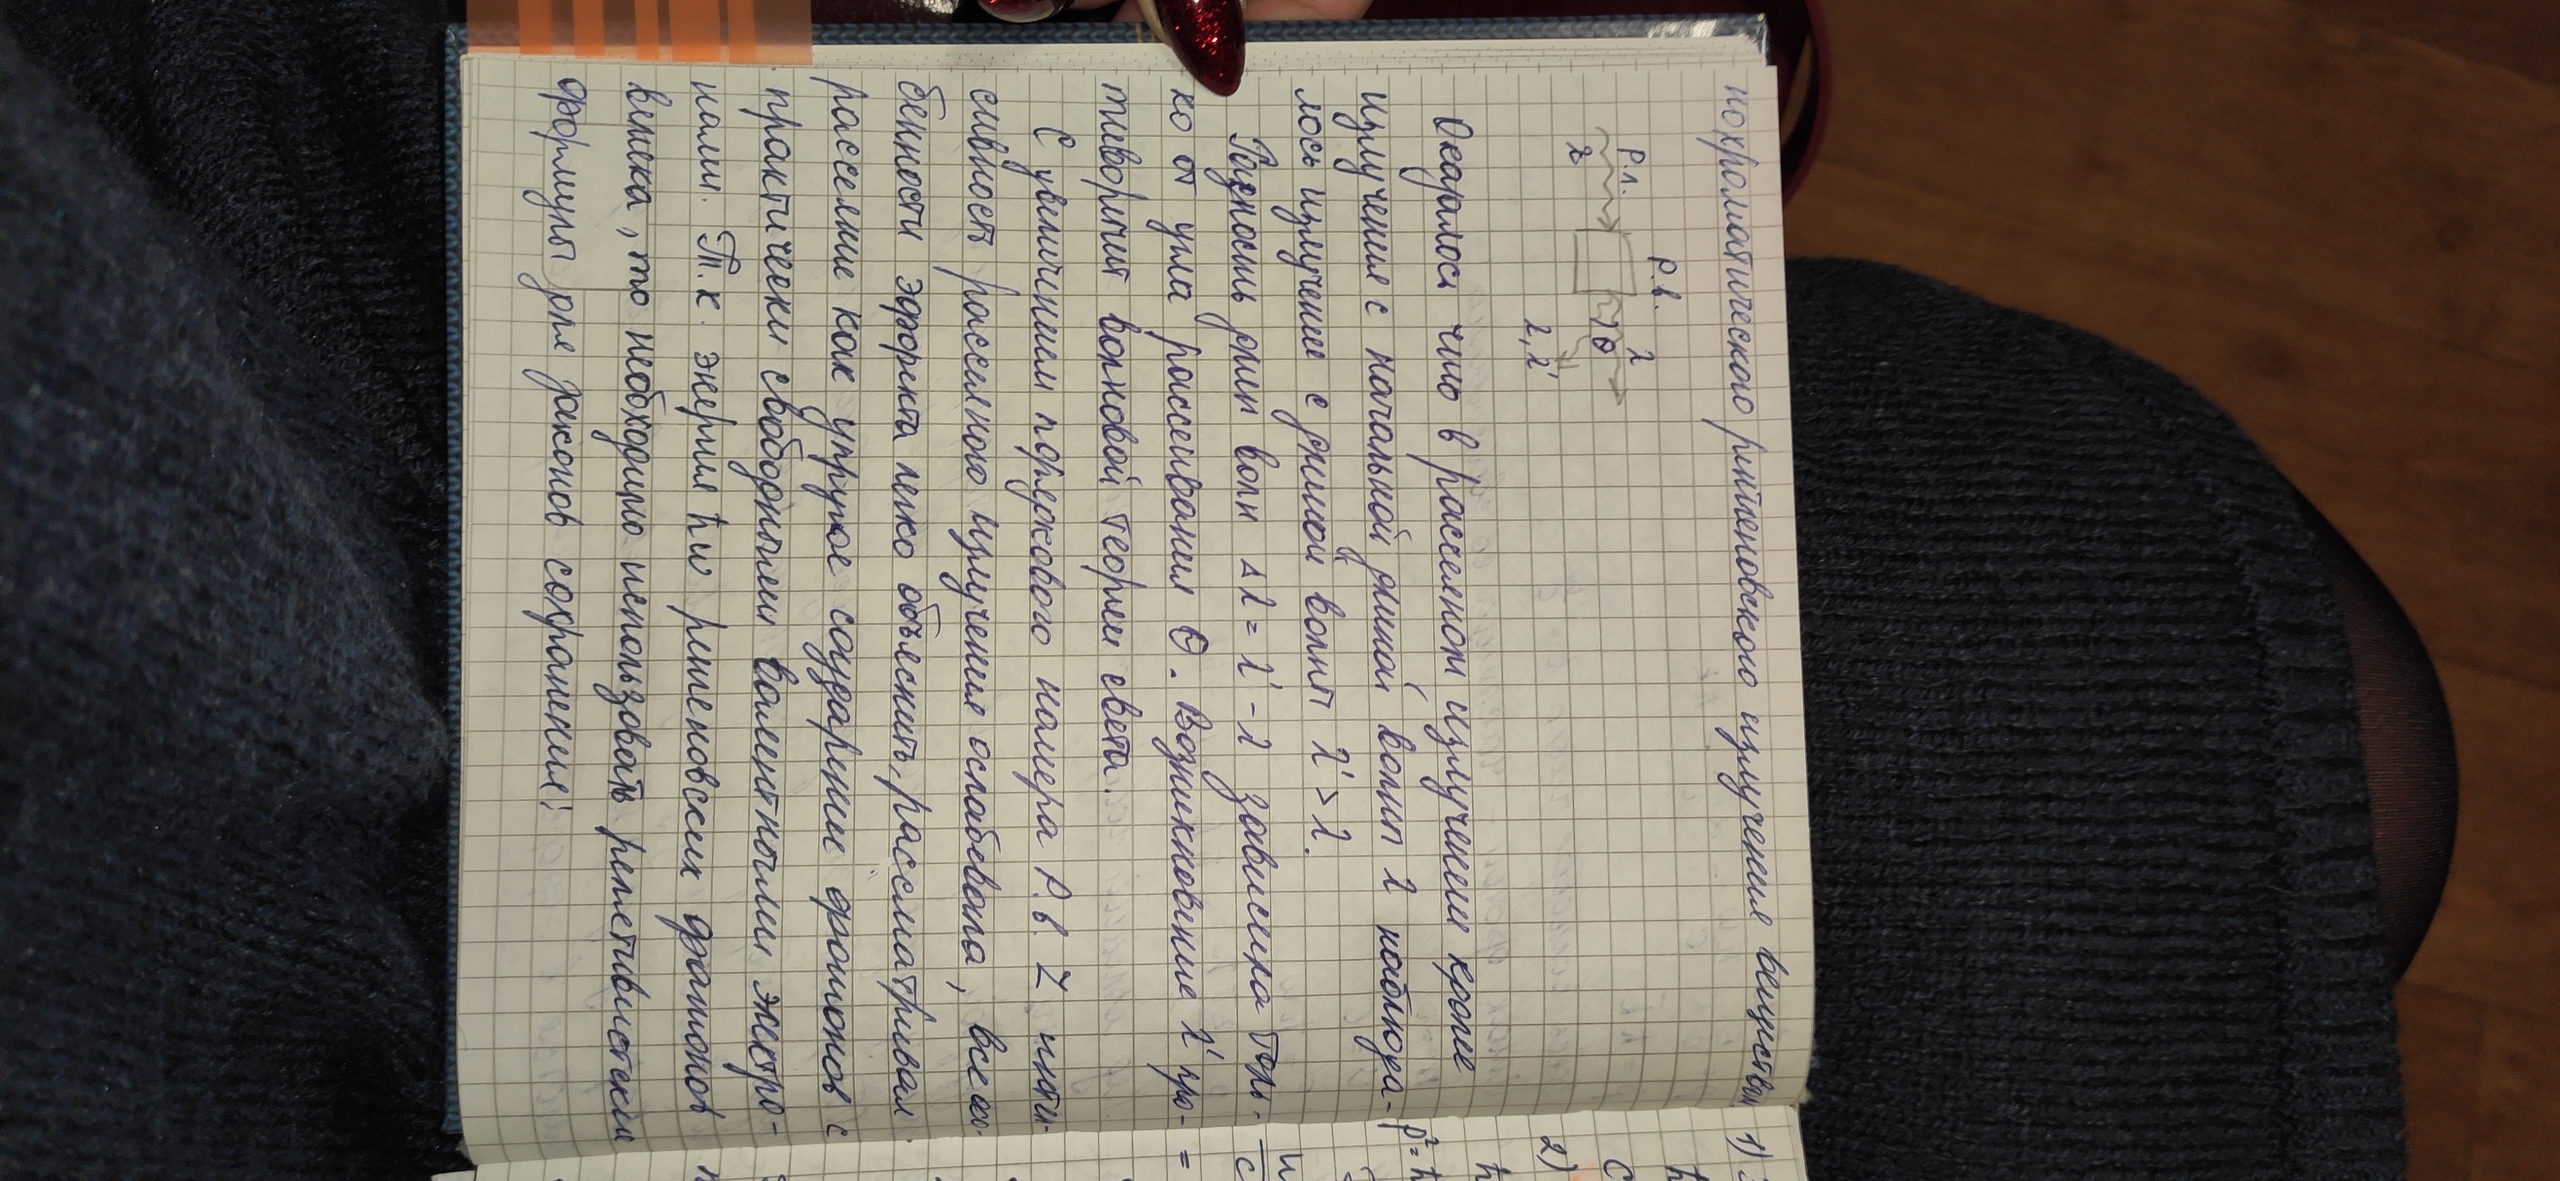 нохроматического рентгеновского излучения веществом
Р.в.
Р.л.
λ
θ
λ
λ, λ'
Оказалось что в рассеяном излучении кроме
излучения с начальной длиной волны λ наблюда-
лось излучение с длиной волны λ' > λ.
Разность длин волн Δλ = λ' - λ зависила толь-
ко от угла рассеивания θ. Возникновение λ' про-
тиворечит волновой теории света.
С увеличением порядкового номера Р.в. Z интен-
сивность рассеяного излучения ослабевала, все осо-
бенности эффекта легко объяснить, рассматривая
рассеяние как упругое соударение фотонов с
практически свободными валентными электро-
нами. Т.к. энергия ħω рентеновских фотонов
велека, то необходимо использовать релятивистские
формулы для законов сохранения:
1)
ħ
C
2)
ħ
p² = ħ
ω
c
=